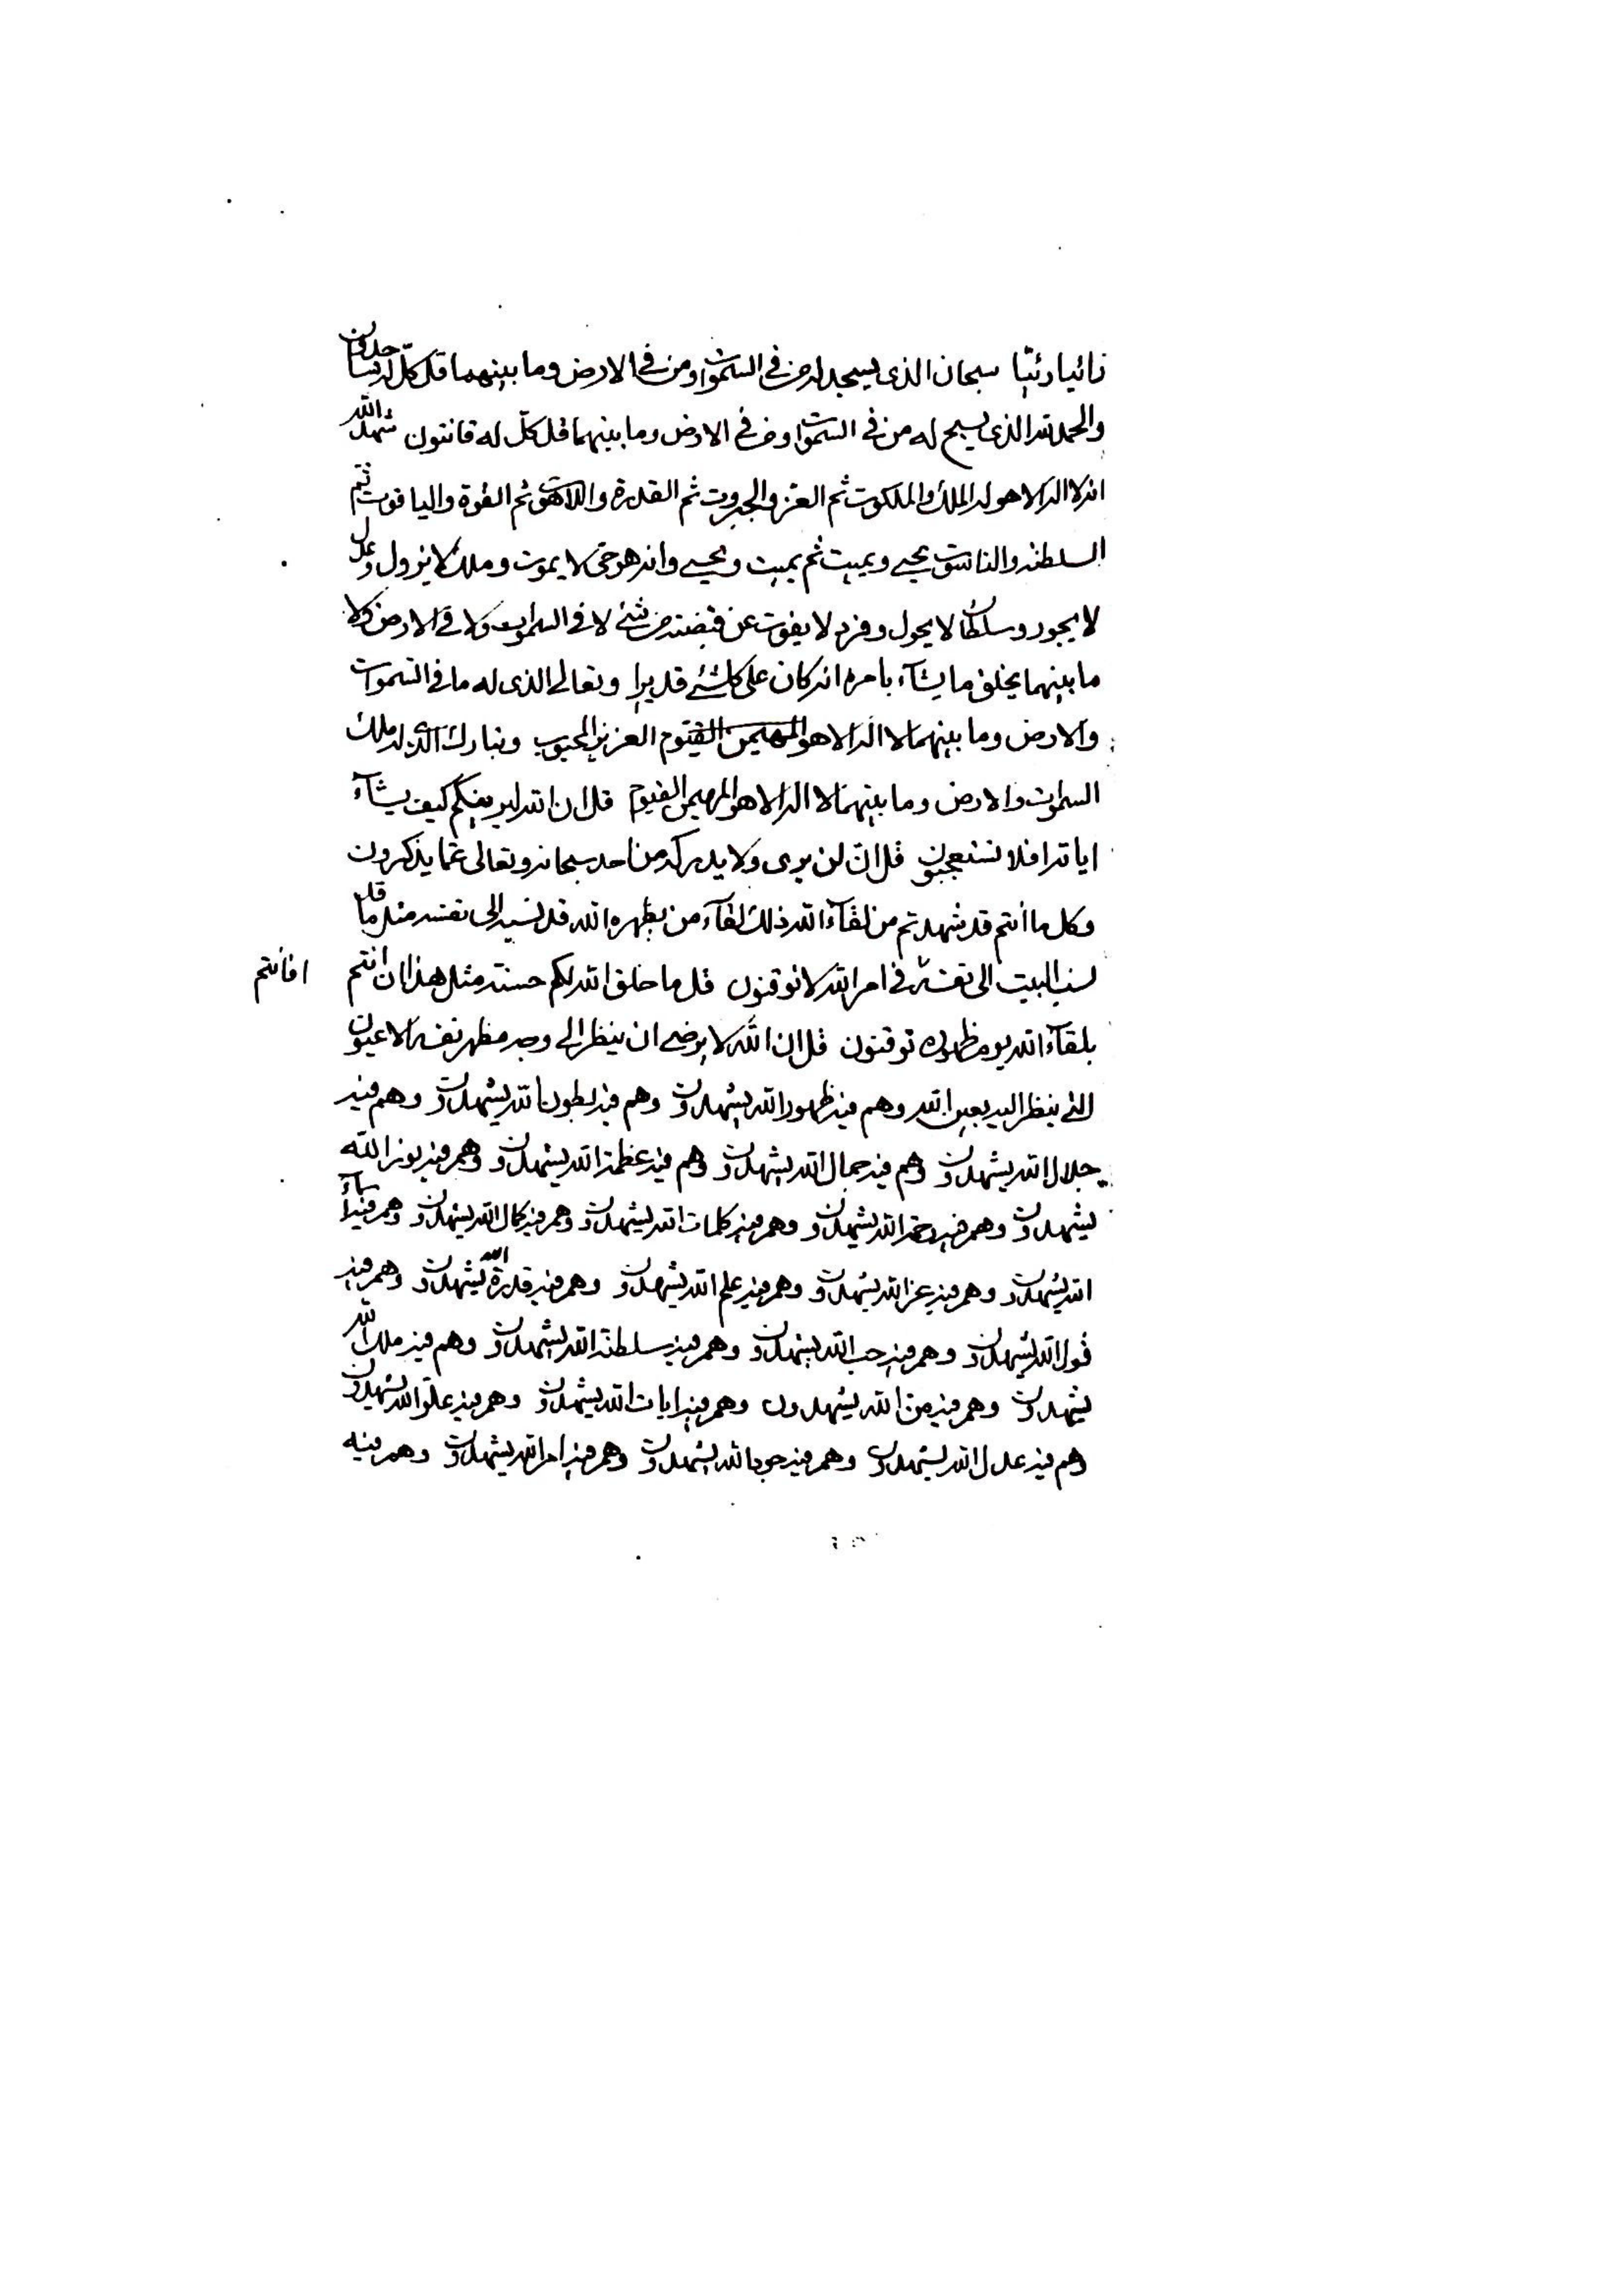 سبحان الذی یسجد له من فی السموات ومن فی الارض وما بینهما قل کل له ساجدون
والحمد لله الذی یسبح له من فی السموات ومن فی الارض وما بینهما قل کل له قانتون شهد الله
انه لا اله الا هو له الملک والملکوت ثم العز والجبروت ثم القدرة واللاهوت ثم القوة والیاقوت ثم
السلطنه والناسوت یحیی ویمیت ثم یمیت ویحیی وانه هو حی لا یموت وملک لا یزول وعدل
لا یجور وسلطان لا یحول وفرد لا یفوت عن قبضته من شئ لا فی السموات ولا فی الارض ولا
ما بینهما یخلق ما یشآء بامره انه کان علی کلشئ قدیرا وتعالی الذی له ما فی السموات
والارض وما بینهما لا اله الا هو المهیمن القیوم العزیز المحبوب وتبارک الذی له ملک
السموات والارض وما بینهما لا اله الا هو المهیمن القیوم قل ان الله لیرینکم کیف یشآء
ایاته افلا تستعجبون قل انه لن یری ولا یدرکه من احد سبحانه وتعالی عما یذکرون
وکل ما أنتم قد شهدتم من لقآء الله ذلک لقآء من یظهره الله قد نسبه الی نفسه مثل ما قد
نسب البیت الی نفسه فی امر الله لا توقنون قل ما خلق الله لکم حسنة مثل هذا ان انتم افأنتم
بلقآء الله یوم ظهوره توقنون قل ان الله لا یرضی ان ینظر الی وجه مظهر نفسه الا عیون
التی ینظر الیه بعین الله وهم فیه ظهور الله یشهدون وهم فیه بطون الله یشهدون وهم فیه
جلال الله یشهدون وهم فیه جمال الله یشهدون وهم فیه عظمة الله یشهدون وهم فیه نور الله
یشهدون وهم فیه رحمة الله یشهدون وهم فیه کلمات الله یشهدون وهم فیه کمال الله یشهدون وهم فیه اسمآء
الله یشهدون وهم فیه عز الله یشهدون وهم فیه علم الله یشهدون وهم فیه قدرة الله یشهدون وهم فیه
قول الله یشهدون وهم فیه حب الله یشهدون وهم فیه سلطنة الله یشهدون وهم فیه ملک الله
یشهدون وهم فیه من الله یشهدون وهم فیه ایات الله یشهدون وهم فیه علو الله یشهدون
وهم فیه عدل الله یشهدون وهم فیه جود الله یشهدون وهم فیه امر الله یشهدون وهم فیه